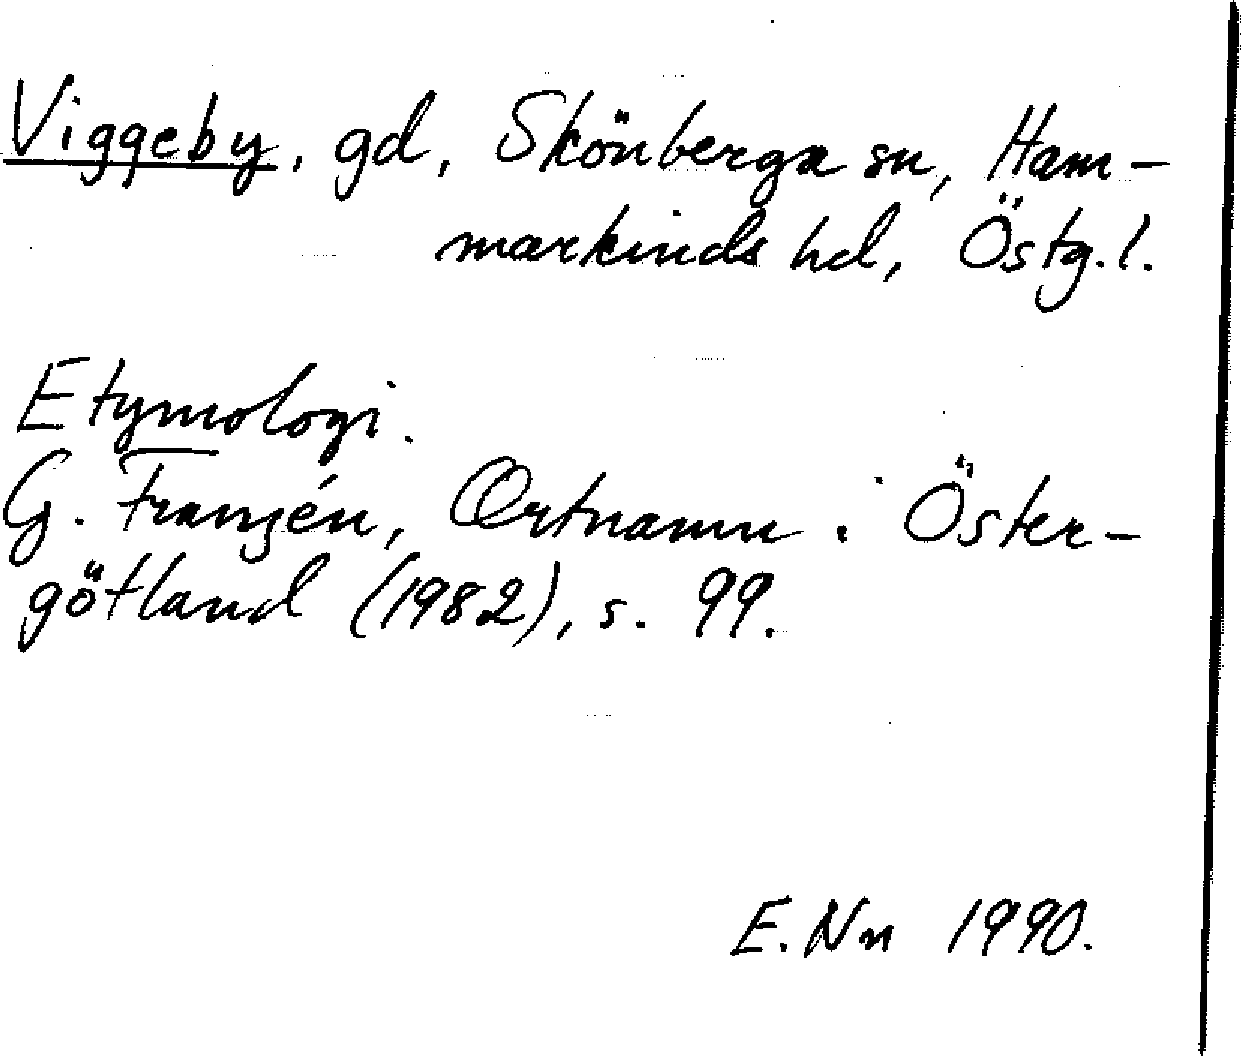 Viggeby, gd, Skönberga sn, Ham-
markinds hd, Östg.l.
Etymologi.
G. Franzén, Ortnamn i Öster-
götland (1982), s. 99.
E. Nn 1990.